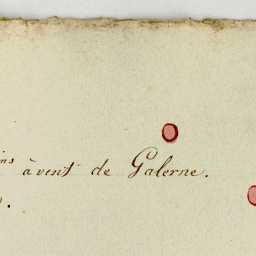 à vent de Galerne.